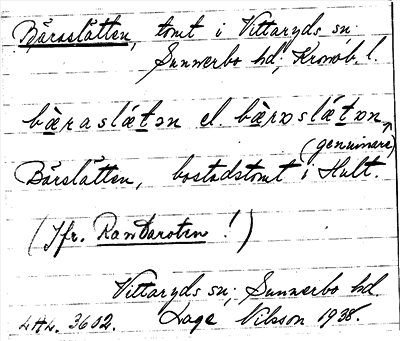 Bäraslätten, tomt i Vittaryds sn.
Sunnerbo hd; Kronob. l.
bæraslætən el. bærɒslætɒn
(genuinare)
Bärslätten, bostadstomt i Hult.
(Jfr. Rambaroten!)
Vittaryds sn; Sunnerbo hd.
LAL. 3602. Lage Nilsson 1938.